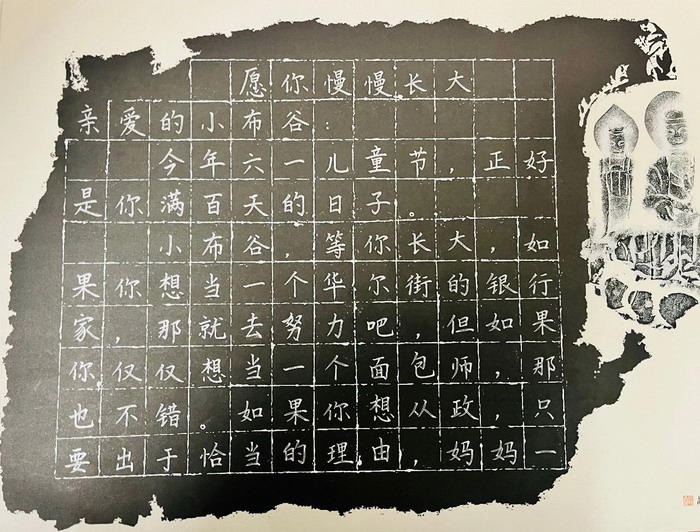 愿你慢慢长大
亲爱的小布谷：
今年六一儿童节，正好
是你满百天的日子。
小布谷，等你长大，如
果你想当一个华尔街的银行
家，那就去努力吧，但如果
你仅仅想当一个面包师，那
也不错。如果你想从政，只
要出于恰当的理由，妈妈一